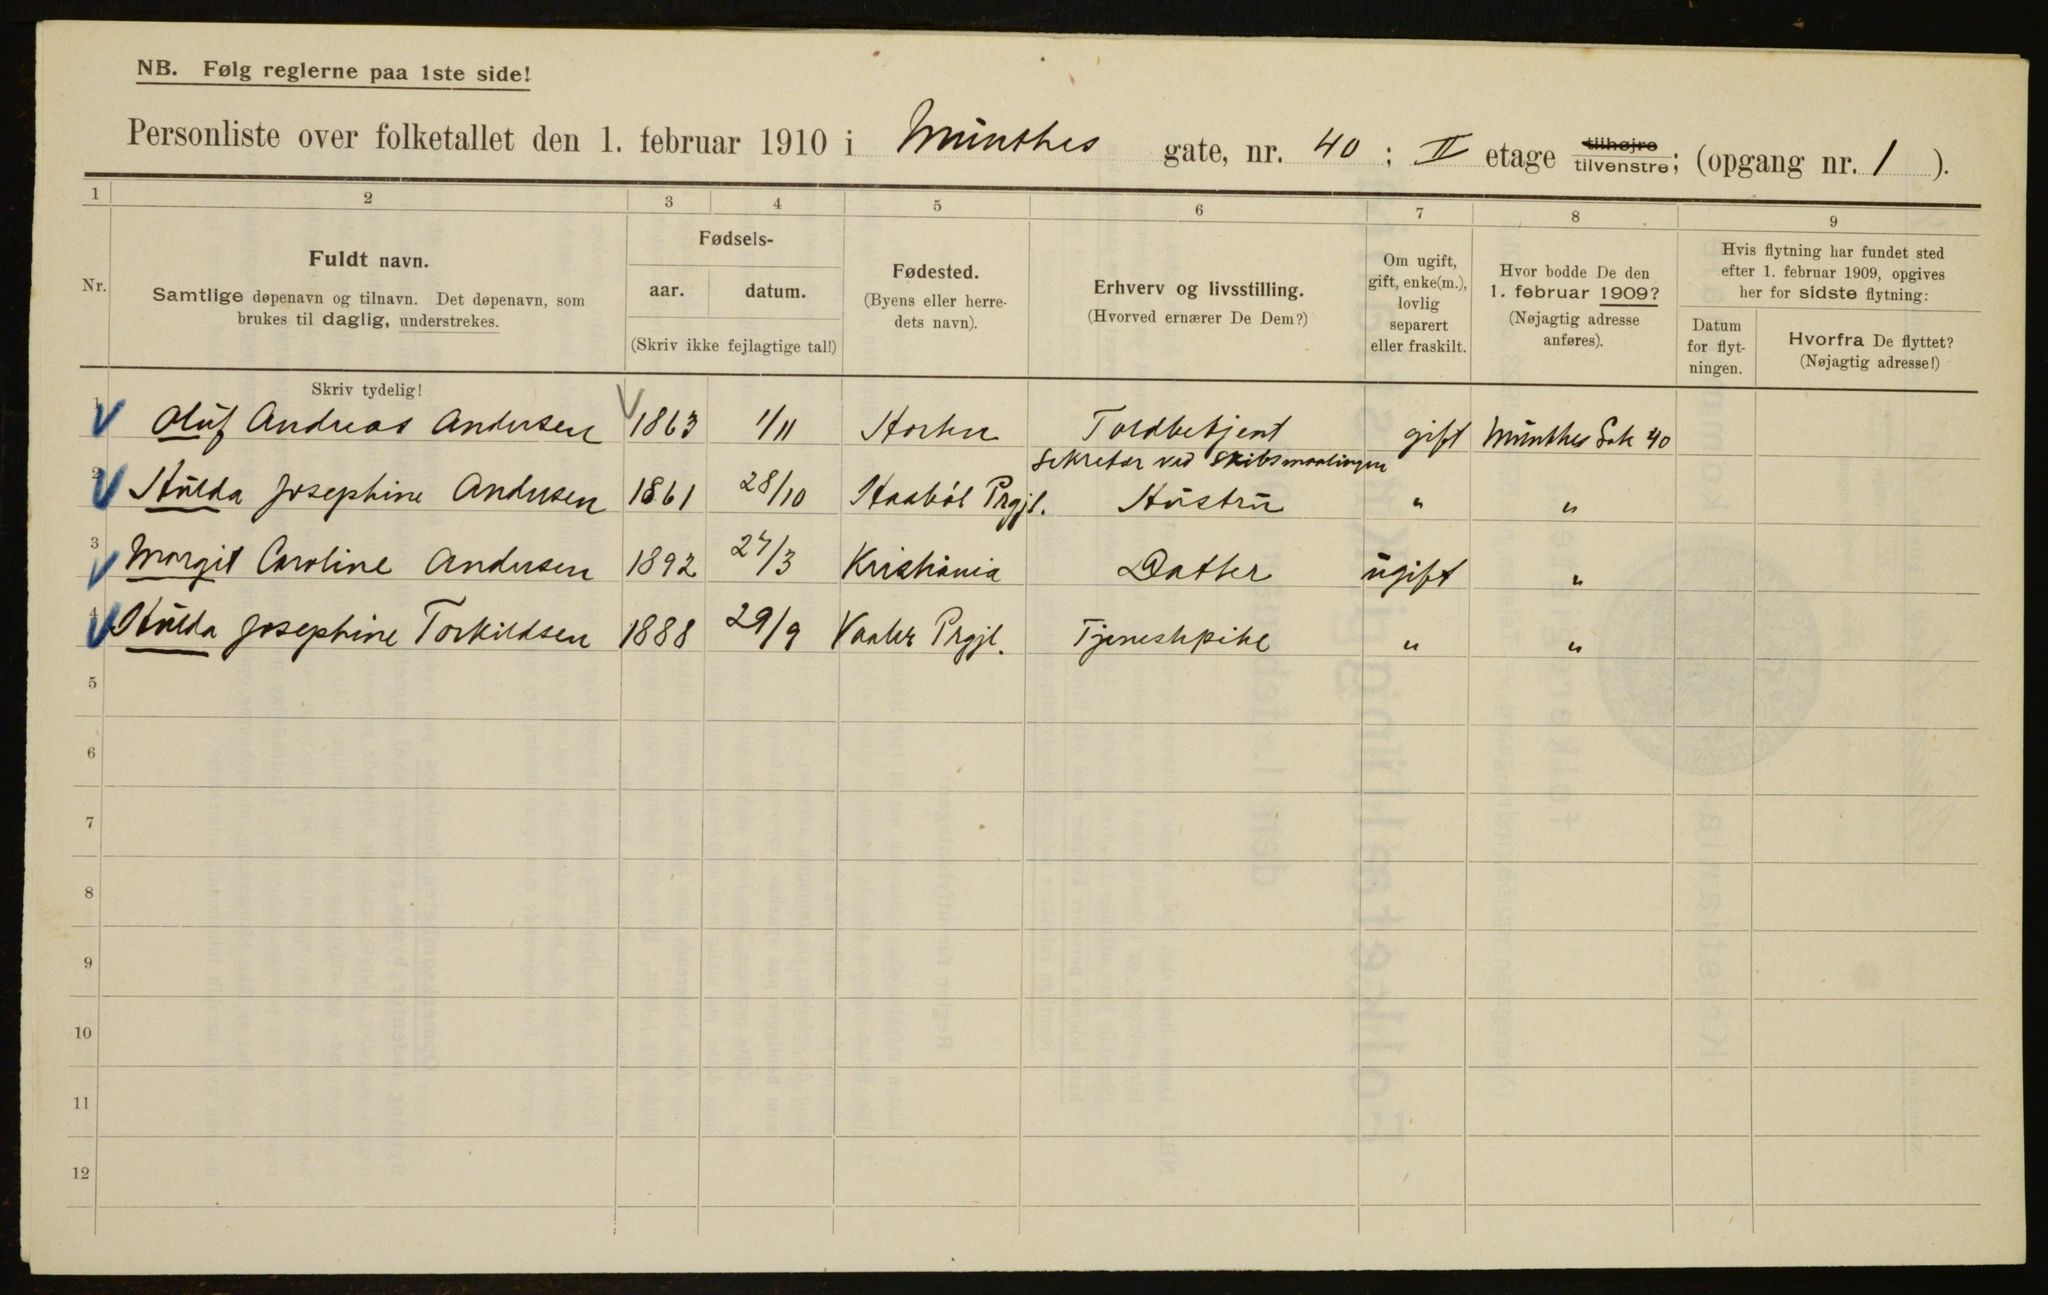 NB. Følg reglerne paa 1ste side!
Personliste over folketallet den 1. februar 1910 i Münthes gate, nr. 40 ; II etage tilhøjre tilvenstre; (opgang nr. 1 ).
1 2 3 4 5 6 7 8 9
Nr.
Fuldt navn.
Samtlige døpenavn og tilnavn. Det døpenavn, som
brukes til daglig, understrekes.
Fødsels-
aar. datum.
(Skriv ikke fejlagtige tal!)
Fødested.
(Byens eller herre-
dets navn).
Erhverv og livsstilling.
(Hvorved ernærer De Dem?)
Om ugift,
gift, enke(m.),
lovlig
separert
eller fraskilt.
Hvor bodde De den
1. februar 1909?
(Nøjagtig adresse
anføres).
Hvis flytning har fundet sted
efter 1. februar 1909, opgives
her for sidste flytning:
Datum
for flyt-
ningen.
Hvorfra De flyttet?
(Nøjagtig adresse!)
Skriv tydelig!
1 Oluf Andreas Andersen 1863 1/11 Horten Toldbetjent gift Münthes Gate 40
Sekretær ved Skibsmaalingen
2 Hulda Josephine Andersen 1861 28/10 Haabøl Prgjl. Hustru " "
3 Margit Caroline Andersen 1892 27/3 Kristiania Datter ugift "
4 Hulda Josephine Torkildsen 1888 29/9 Vaaler Prgjl. Tjenestepike " "
5
6
7
8
9
10
11
12